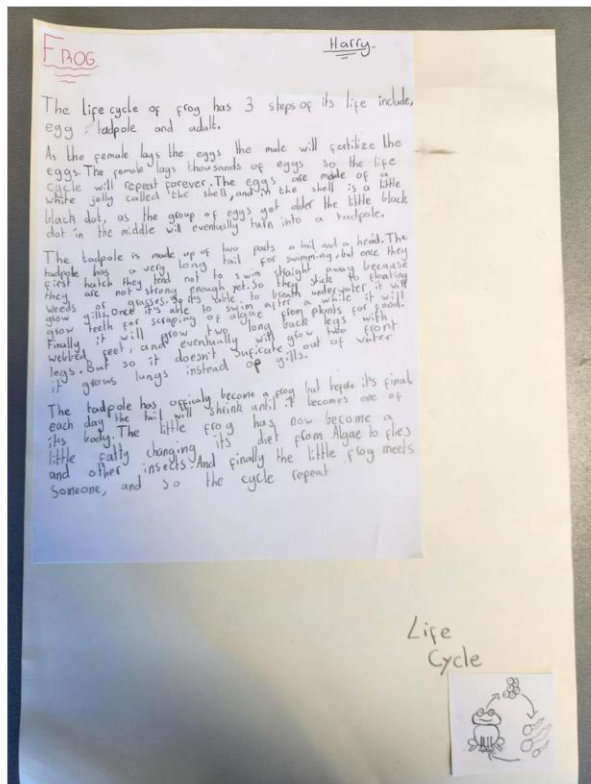 FROG
Harry.
The life cycle of frog has 3 steps of its life include,
egg, tadpole and adult.
As the female lays the eggs the male will fertilize the
eggs. The female lays thousands of eggs so the life
cycle will repeat forever. The eggs are made of a
white jelly called the shell, and in the shell is a little
black dot, as the group of eggs got older the little black
dot in the middle will eventually turn into a tadpole.
The tadpole is made up of two parts a tail and a head. The
tadpole has a very long tail for swimming, but once they
first hatch they tend not to swim straight away because
they are not strong enough yet. So they stick to floating
weeds or grasses. So it's able to breath underwater it will
grow gills. Once it's able to swim after a while it will
grow teeth for scraping of algae from plants for food.
Finally it will grow two long back legs with
webbed feet, and eventually will grow two front
legs. But so it doesn't suficate out of water
it grows lungs instead of gills.
The tadpole has officaly become a frog but before it's final,
each day the tail will shrink until it becomes one of
its body. The little frog has now become a
little fatty changing its diet from Algae to flies
and other insects. And finally the little frog meets
someone, and so the cycle repeat
Life
Cycle